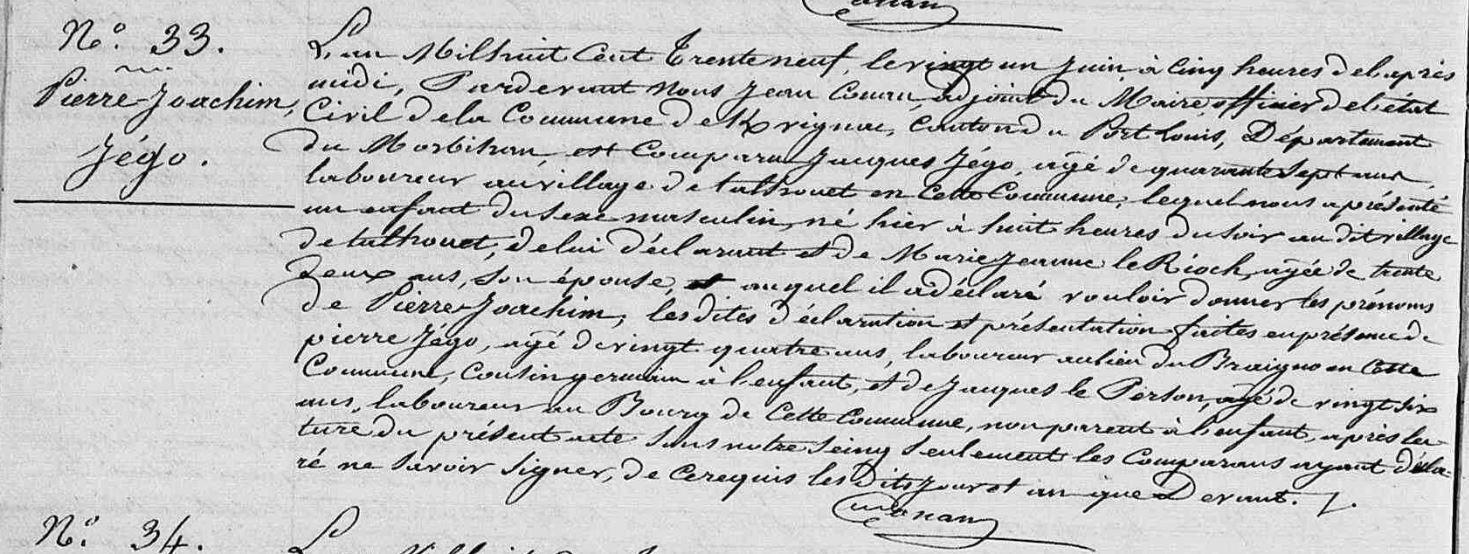 Conan
N.o 33.
Pierre Joachim,
Jégo.
L'an Mil huit Cent Trente neuf, le vingt un Juin, à Cinq heures de l'après
midi, Pardevant Nous Jean Conan, adjoint du Maire, officier de l'état
Civil de la Commune de Kvrignac, Canton du Port Louis, Département
du Morbihan, est Comparu Jacques Jégo, agé de quarante Sept ans,
laboureur au village de talhouet en Cette Commune, lequel nous a présenté
un enfant du Sexe masculin, né hier à huit heures du Soir au dit village
de talhouet, de lui déclarant et de Marie Jeanne le Rioch, agée de trente
deux ans, Son épouse, et auquel il a déclaré vouloir donner les prénoms
de Pierre Joachim, les dites déclaration et présentation faites en présence de
pierre Jégo, agé de vingt quatre ans, laboureur au lieu du Braigno en Cette
Commune, Cousin germain à l'enfant, et de Jacques le Person, agé de vingt six
ans, laboureur au Bourg de Cette Commune, non parent à l'enfant, après lec-
ture du présent acte Sous notre Seing Seulement les Comparans ayant décla-
ré ne Savoir Signer, de ce requis les dits Jour et an que Devant. /.
Conan
N.o 34.